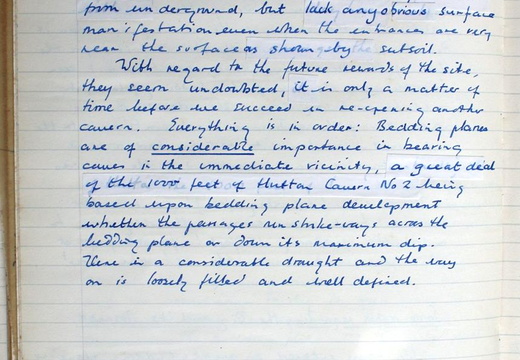 from underground, but lack any obvious surface
manifestation even when the entrances are very
near the surface as shown by the subsoil.
With regard to the future rewards of the site,
they seem undoubted, it is only a matter of
time before we succeed in re-opening another
cavern. Everything is in order: Bedding planes
are of considerable importance in bearing
caves in the immediate vicinity, a great deal
of the 1000 feet of Hutton Cavern No 2 being
based upon bedding plane development
whether the passages run strike-ways across the
bedding plane or down its maximum dip.
There is a considerable draught and the way
on is loosely filled and well defined.